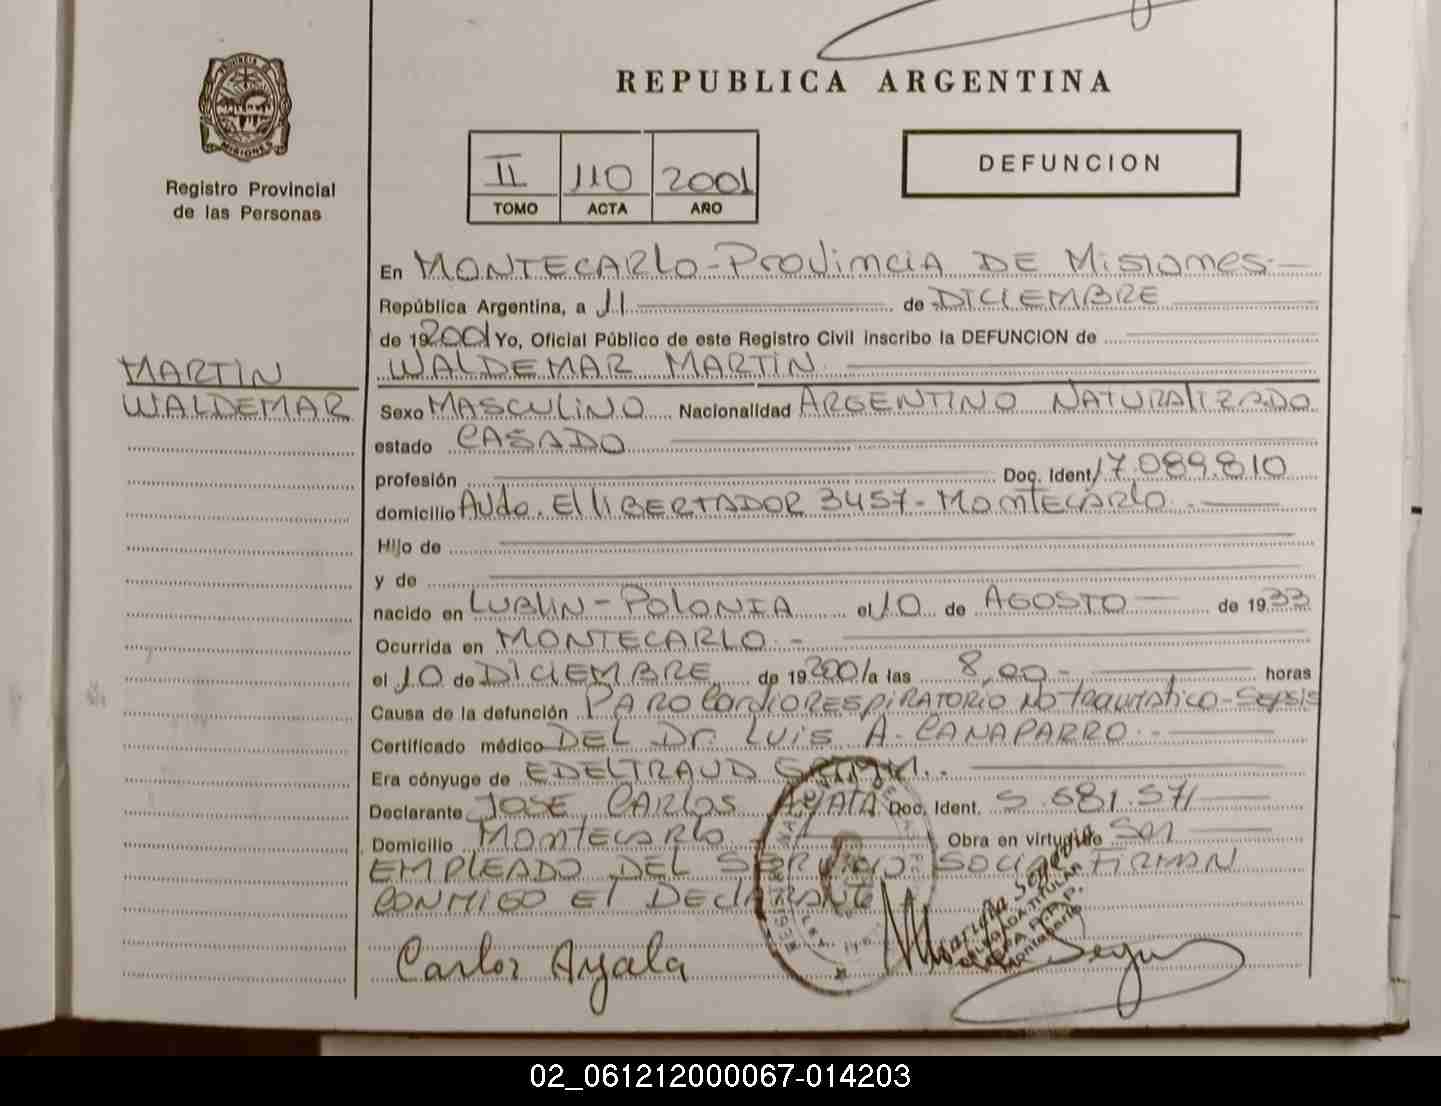 REPUBLICA ARGENTINA
PROVINCIA DE
MISIONES
Registro Provincial
de las Personas
II 110 2001
TOMO ACTA AÑO
DEFUNCION
En MONTECARLO - PROVINCIA DE MISIONES
República Argentina, a 11 de DICIEMBRE
de 192001 Yo, Oficial Público de este Registro Civil inscribo la DEFUNCION de
WALDEMAR MARTIN
MARTIN
WALDEMAR
Sexo MASCULINO Nacionalidad ARGENTINO NATURALIZADO
estado CASADO
profesión Doc. Ident. 17.089.810
domicilio Avda. El LIBERTADOR 3457 - MONTECARLO.
Hijo de
y de
nacido en LUBLIN - POLONIA el 10 de AGOSTO de 1933
Ocurrida en MONTECARLO. -
el 10 de DICIEMBRE de 192001 a las 8,00 - horas
Causa de la defunción PARO CardiORESPIRATORIO NO traumatico - Sepsis
Certificado médico DEL Dr. LUIS A. CANAPARRO. -
Era cónyuge de EDELTRAUD
Declarante JOSE CARLOS AYALA Doc. Ident. 5.681.571
Domicilio MONTECARLO Obra en virtud de Ser
EMPLEADO DEL SERVICIO SOCIAL FIRMAN
CONMIGO El DECLARANTE
Carlos Ayala
02_061212000067-014203